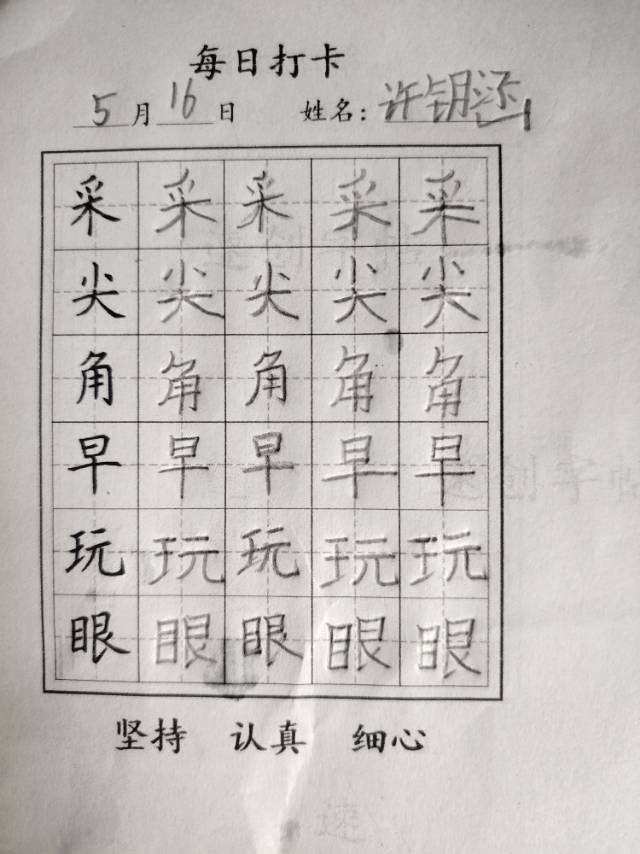 每日打卡
5月16日 姓名：许钥涵
采采采采采
尖尖尖尖尖
角角角角角
早早早早早
玩玩玩玩玩
眼眼眼眼眼
坚持 认真 细心